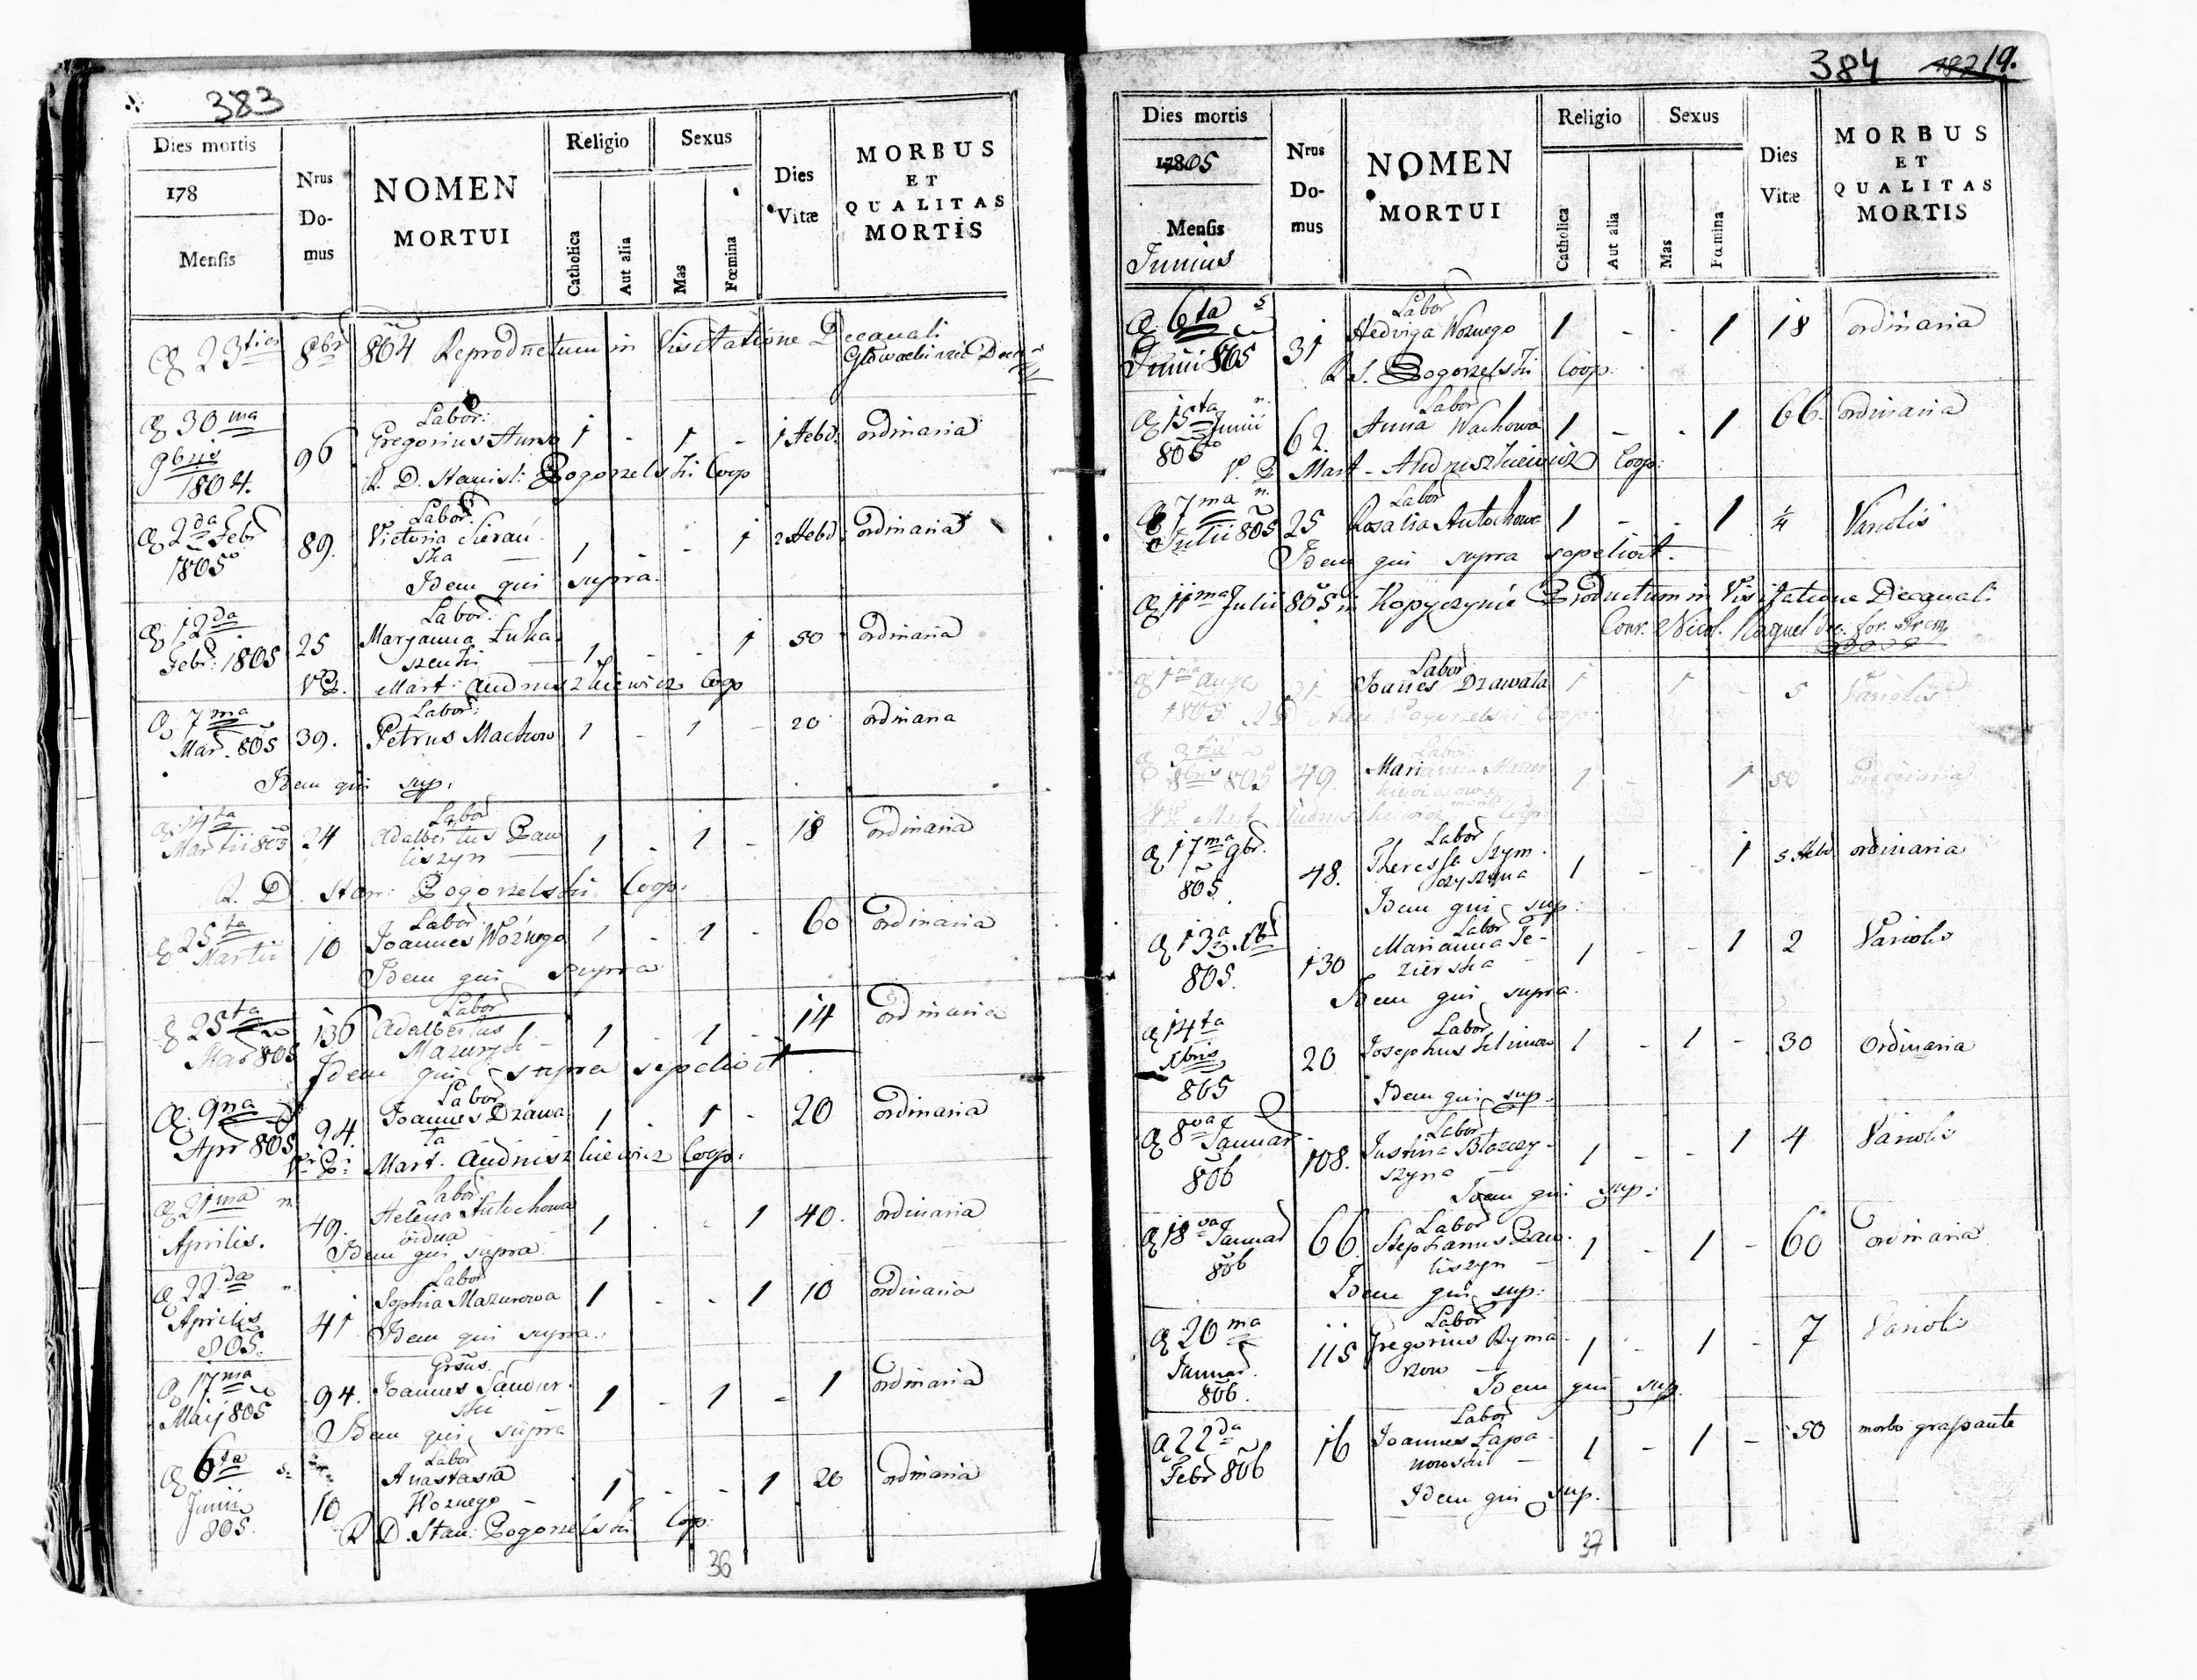 383
Dies mortis
178
Mensis
Nrus Domus
NOMEN MORTUI
Religio
Catholica
Aut alia
Sexus
Mas
Fœmina
Dies Vitæ
MORBUS ET QUALITAS MORTIS
23tia 8br 804 Reproductum in Visitatione Decanali
30ma 9bris 1804. 96 Labor: Gregorius 1 - 1 - 1 Hebd. ordinaria
R. D. Stanisl: Pogorzelski Coop
2da Febr 1805 89. Labor: Victoria Sierańska 1 - - 1 2 Hebd: ordinaria
Idem qui supra.
12da Febr: 1805 25 Labor: Maryanna Łukaszenki 1 - - 1 50 ordinaria
V P. Mart: Andruszkiewicz Coop
7ma Mar. 805 39. Labor: Petrus Machow 1 - 1 - 20 ordinaria
Idem qui sup:
14ta Martii 805 24 Labor Adalbertus Pawliszyn 1 - 1 - 18 ordinaria
R. D. Stan: Pogorzelski Coop:
25ta Martii 10 Labor Joannes Woźnego 1 - 1 - 60 ordinaria
Idem qui supra
25ta Mar 805 136 Labor Adalbertus 1 - 1 - 14 ordinaria
Idem qui supra sepelivit
9na Apr 805 24. Labor Joannes Dzawała 1 - 1 - 20 ordinaria
V. P. Mart. Andruszkiewicz Coop:
21ma Aprilis. 49. Labor Helena Antochowa vidua 1 - - 1 40. ordinaria
Idem qui supra
22da Aprilis 805. 41 Labor Sophia Mazurowa 1 - - 1 10 ordinaria
Idem qui supra.
17ma Maij 805 94. Joannes 1 - 1 - 1 ordinaria
Idem qui supra
6ta Junii 805. 10 Labor Anastasia Woznego 1 - - 1 20 ordinaria
R D. Stan: Pogorzelski Coop:
36
384 19.
Dies mortis
1805
Mensis
Junius
Nrus Domus
NOMEN MORTUI
Religio
Catholica
Aut alia
Sexus
Mas
Fœmina
Dies Vitæ
MORBUS ET QUALITAS MORTIS
6ta Junii 805 31 Labor Hedviga Woznego 1 - - 1 18 ordinaria
R S. Pogorzelski Coop:
15ta Junii 805 62. Labor Anna Wachowa 1 - - 1 66. ordinaria
V. P Mart - Andruszkiewicz Coop:
7ma Julii 805 25 Labor Rosalia Antochowa 1 - - 1 1/4 Variolis
Idem qui supra sepelivit.
11ma Julii 805 in Kopyczynie Productum in Visitatione Decanali
1ma Aug 1805 31 Labor Joanes Dzawała 1 - 1 - 5 Variolis
R D Stan Pogorzelski Coop:
3tia 8bris 805 49. Labor: Marianna 1 - - 1 50 ordinaria
V P. Mart. Andruszkiewicz Coop:
17ma 9br. 805 48. Labor Theressa Szymczyszyna 1 - - 1 5 Hebd ordinaria
Idem qui sup:
13a Xbr 805. 130 Labor Marianna Jezierska 1 - - 1 2 Variolis
Idem qui supra.
14ta Xbris 805 20 Labor Josephus Selimow 1 - 1 - 30 Ordinaria
Idem qui sup.
8va Januar 806 108. Labor Justina Błaszczyszyna 1 - - 1 4 Variolis
Idem qui sup:
18va Januar 806 66. Labor Stephanus Pawliszyn 1 - 1 - 60 ordinaria
Idem qui sup:
20ma Januar. 806. 115 Labor Gregorius Rymarzow 1 - 1 - 7 Variolis
Idem qui sup.
22da Febr 806 16 Labor Joannes Łapanowski 1 - 1 - 50 morbo grassante
Idem qui sup.
37